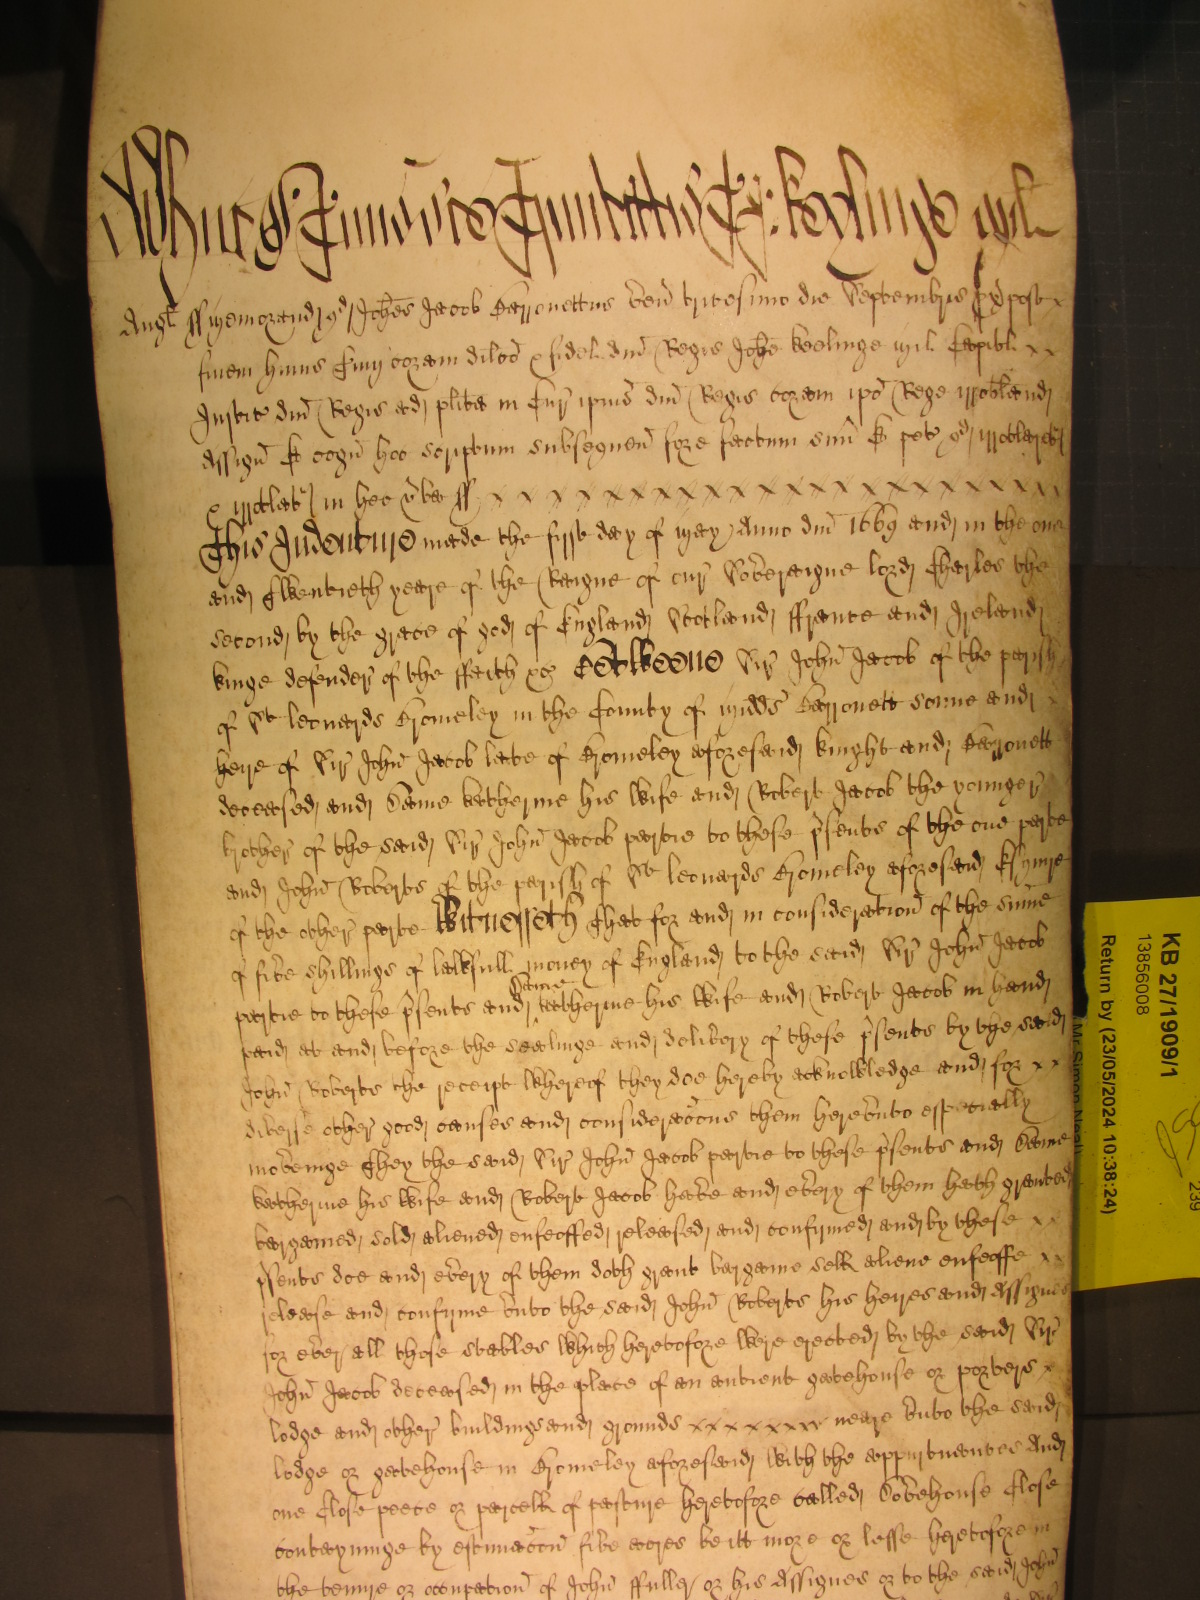 Adhuc de Termino sce Trinitatis T. R: keelinge Mil
Angl ss Memorand qd Johes Jacob Barronettus ven tricesimo die Septembris post x
finem huius Tmi coram dilco & fidel dni Regis Johe Keelinge Mil Capitl x x
Justic dni Regis ad plita in Cur ipius dni Regis coram ipo Rege irrotland
Assign & cogn hoc scriptum subsequen fore factum suu & pet qd irrotlaretr
& irrotlatr in hec vba ss x x x x x x x x x x x x x x x x x x x x x x x
This Indenture made the first day of May Anno dni 1669 and in the one
and Twentieth yeare of the Raigne of our Soveraigne lord Charles the
second by the grace of god of England Scotland ffrance and Ireland
kinge defender of the ffaith &c Betweene Sir John Jacob of the parish
of St leonards Bromeley in the County of Midds Barronett sonne and x
heire of Sir John Jacob late of Bromeley aforesaid knight and Barronett
deceased and Dame katherine his wife and Robert Jacob the younger
brother of the said Sir John Jacob partie to these psents of the one parte
and John Roberts of the parish of St leonards Bromeley aforesaid Esquire
of the other parte Witnesseth That for and in consideration of the sume
of five shillings of lawfull money of England to the said Sir John Jacob
partie to these psents and Dame katherine his wife and Robert Jacob in hand
paid at and before the sealinge and delivery of these psents by the said
John Roberts the receipt whereof they doe hereby acknowledge and for x x
diverse other good causes and consideracons them herevnto especially
moveinge They the said Sir John Jacob partie to these psents and Dame
katherine his wife and Robert Jacob have and every of them hath granted
bargained sold aliened enfeoffed released and confirmed and by these x x
psents doe and every of them doth grant bargaine sell aliene enfeoffe x x
release and confirme vnto the said John Roberts his heires and Assignes
for ever all those stables which heretofore were erected by the said Sir
John Jacob deceased in the place of an antient gatehouse or porters x
lodge and other buildings and grounds x x x x x x x neare vnto the said
lodge or gatehouse in Bromeley aforesaid with the appurtnances And
one Close peece or parcell of pasture heretofore called Dovehouse Close
contayninge by estimacon five acres be itt more or lesse heretofore in
the tenure or occupation of John ffuller or his Assignes or to the said John
KB 27/1909/1
13856008
Return by (23/05/2024 10:38:24)
239